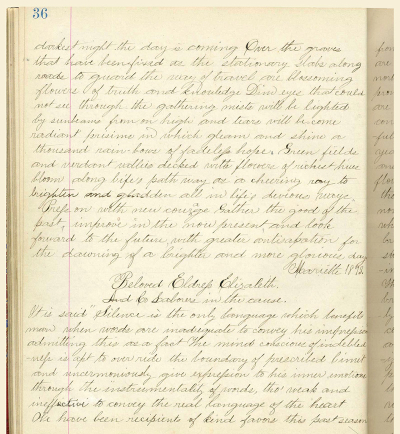 36
darkest night the day is coming Over the graves
that have been fixed as the stationary slabs along
roads to guard the way of travel are blossoming
flowers of truth and knowledge Dim eyes that could
not see through the gathering mists will be lighted
by sunbeams from on high and tears will become
radiant prisims in which gleam and shine a
thousand rain-bows of fadeless hope. Green fields
and verdant vallies decked with flowers of richest hues
bloom along life's path way as a cheering ray to
brighten and gladden all in life's devious ways
Press on with new courage Gather the good of the
past, improve in the now present and look
forward to the future with greater anticipation for
the dawning of a brighter and more glorious day
Harriett
Beloved Eldress Elizabeth.
And Co laborers in the cause.
It is said "Silence is the only language which benefits
man when words are inadequate to convey his impression
admitting this as a fact The mind conscious of indebted
ness is apt to over ride the boundary of prescribed limit
and unceremoniously give expression to his inner emotions
through the instrumentality of words, tho' weak and
ineffective to convey the real language of the heart
We have been recipients of kind favors this past season